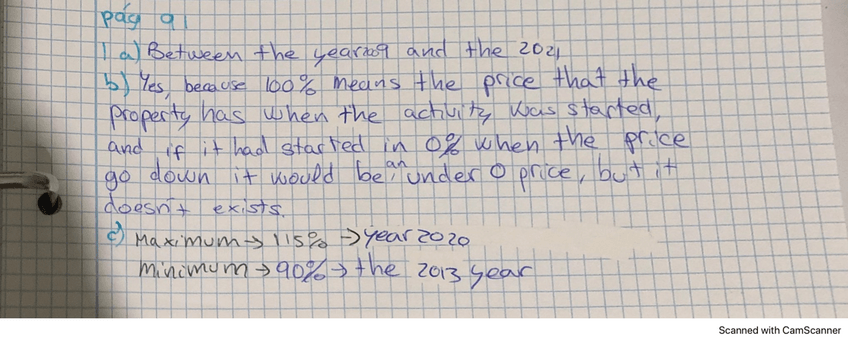 pág 91
1 a) Between the year 2009 and the 2021
b) Yes, because 100% means the price that the
property has when the activity was started,
and if it had started in 0% when the price
go down it would be an under 0 price, but it
doesn't exists.
c) Maximum → 115% → year 2020
minimum → 90% → the 2013 year
Scanned with CamScanner